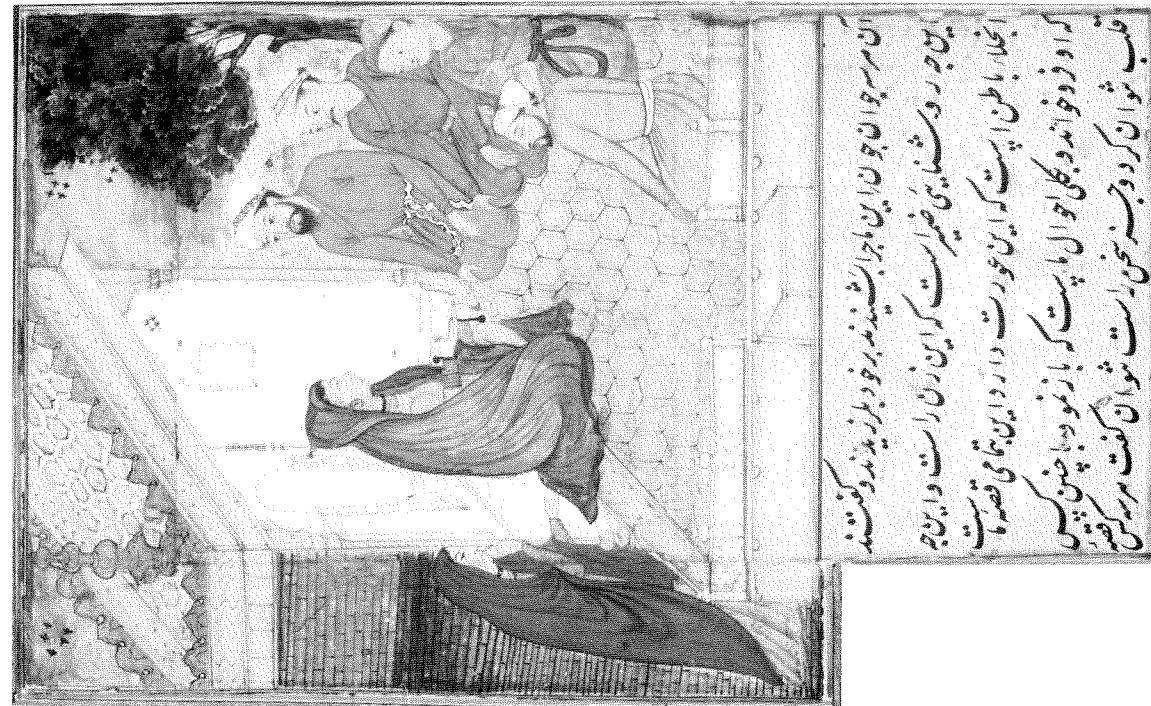 آن هر سه جوان چون این ماجرا شنیدند بر خود بلرزیدند و گفتند
این چه روشنایی ضمیر است که این زن راست و این چه
انجلاء باطن است که این عورت دارد این بتمامی قصه ماست
که او فرو خواند و بکلی احوال ماست که باز نمود با چنین کس
قلب نتوان کرد و جز سخن راست نتوان گفت هر سه کس قصه